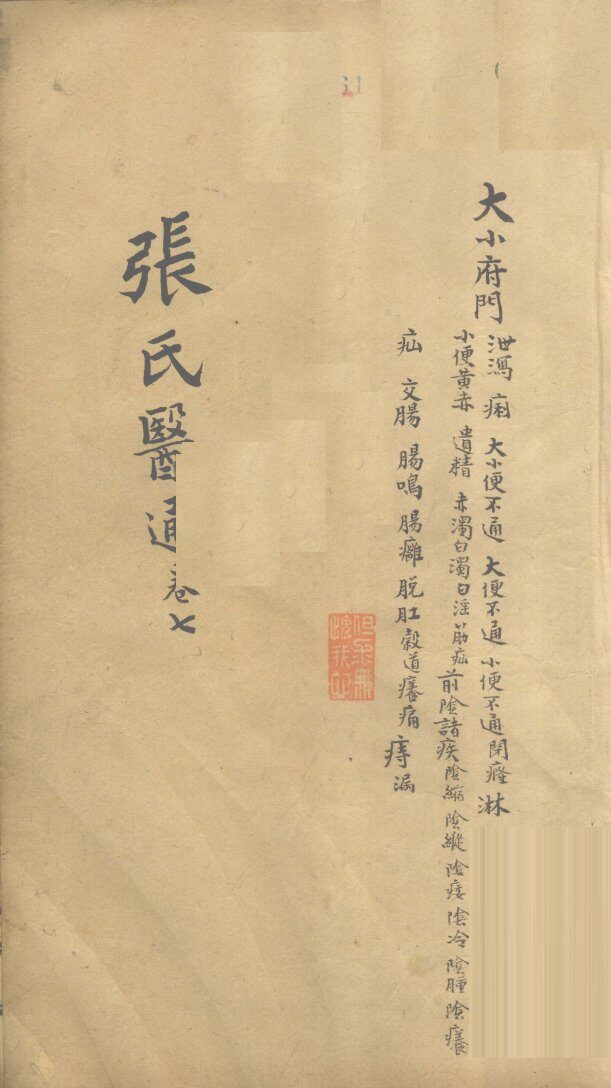 大小府門 泄瀉 痢 大小便不通 大便不通 小便不通 閉癃 淋
小便黃赤 遺精 赤濁白濁白淫 筋疝 前陰諸疾 陰縮 陰縱 陰痿 陰冷 陰腫 陰癢
疝 交腸 腸鳴 腸癰 脫肛 穀道癢痛 痔漏
張氏醫通 卷七